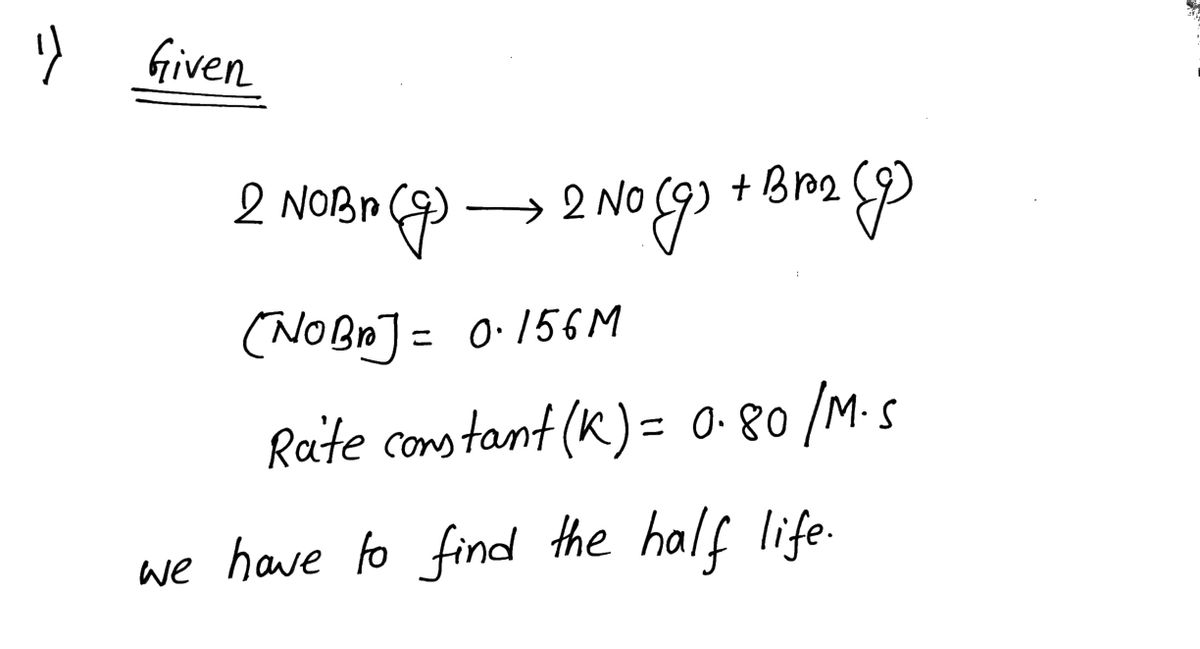 1) Given
2 NOBr (g) → 2 NO (g) + Br2 (g)
[NOBr] = 0.156M
Rate constant (K) = 0.80 /M.s
we have to find the half life.